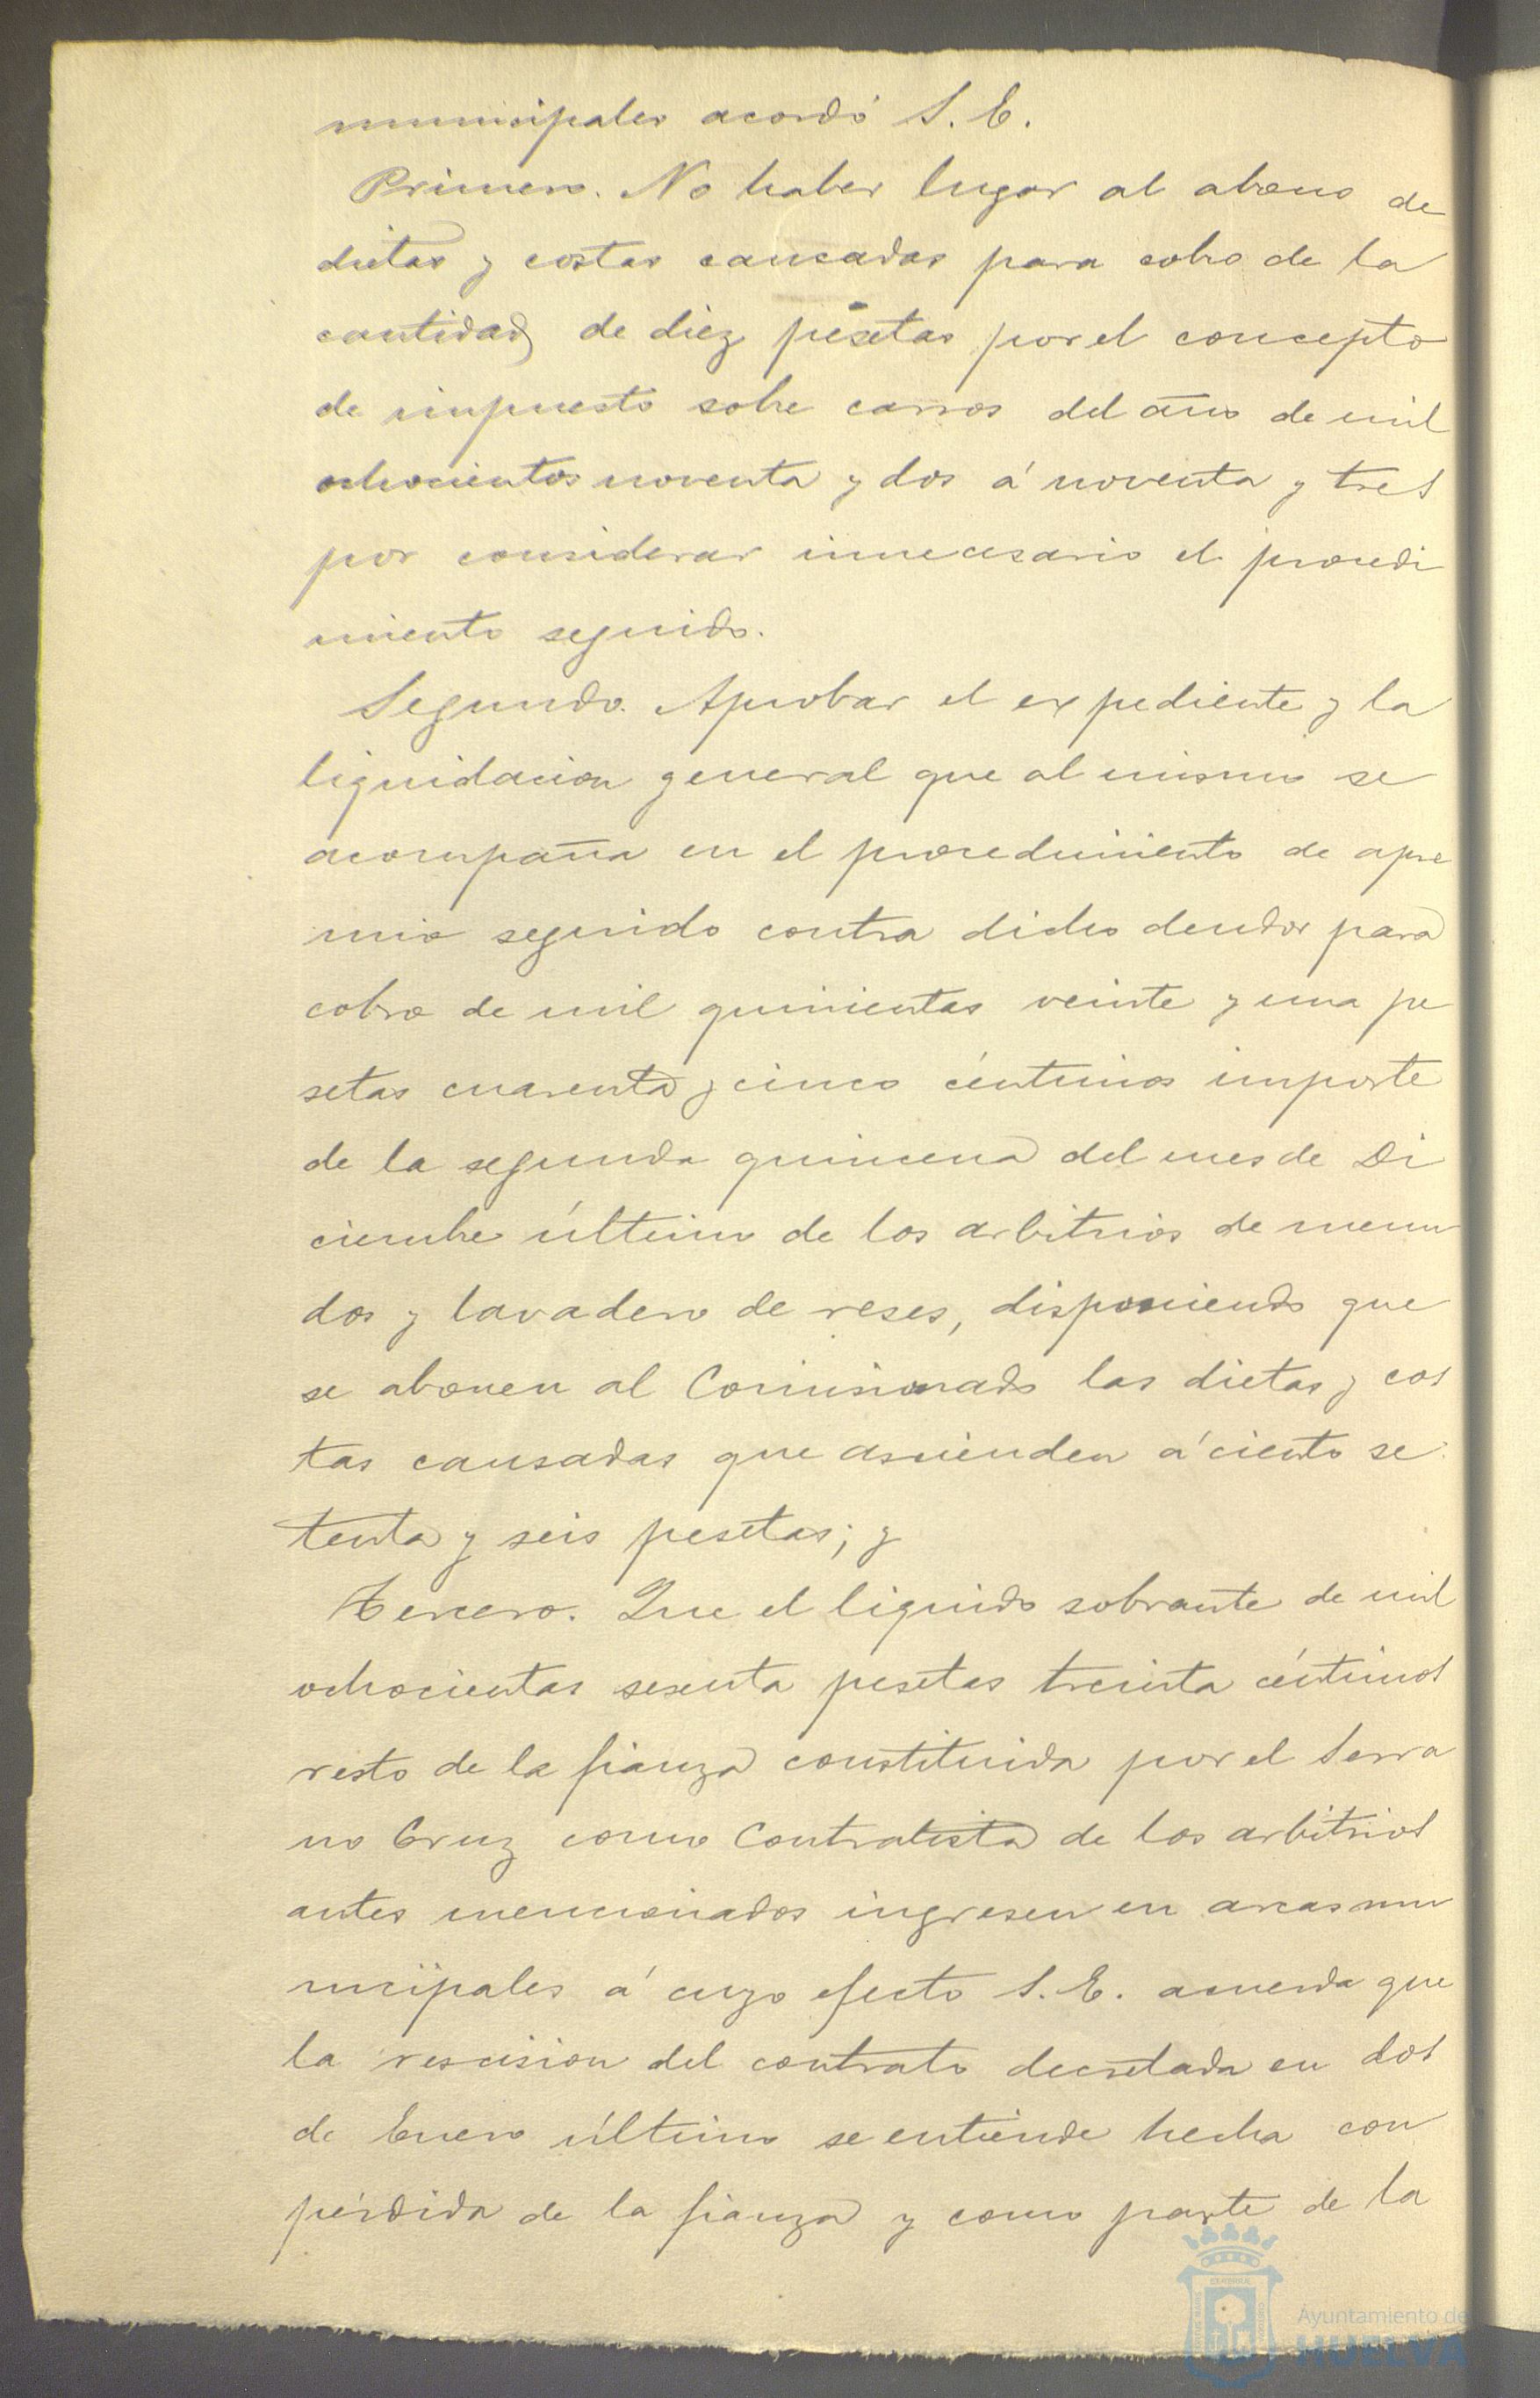 municipales acordó S. E.
Primero. No haber lugar al abono de
dietas y costas causadas para cobro de la
cantidad de diez pesetas por el concepto
de impuesto sobre carros del año de mil
ochocientos noventa y dos á noventa y tres
por considerar innecesario el procedi
miento seguido.
Segundo. Aprobar el expediente y la
liquidacion general que al mismo se
acompaña en el procedimiento de apre
mio seguido contra dicho deudor para
cobro de mil quinientas veinte y una pe
setas cuarenta y cinco céntimos importe
de la segunda quincena del mes de Di
ciembre último de los arbitrios de menu
dos y lavadero de reses, disponiendo que
se abonen al Comisionado las dietas y cos
tas causadas que ascienden á ciento se
tenta y seis pesetas; y
Tercero. Que el liquido sobrante de mil
ochocientas sesenta pesetas treinta céntimos
resto de la fianza constituida por el Serra
no Cruz como Contratista de los arbitrios
antes mencionados ingresen en arcas mu
nicipales á cuyo efecto S. E. acuerda que
la rescision del contrato decretada en dos
de Enero último se entiende hecha con
pérdida de la fianza y como parte de la
Ayuntamiento de
HUELVA